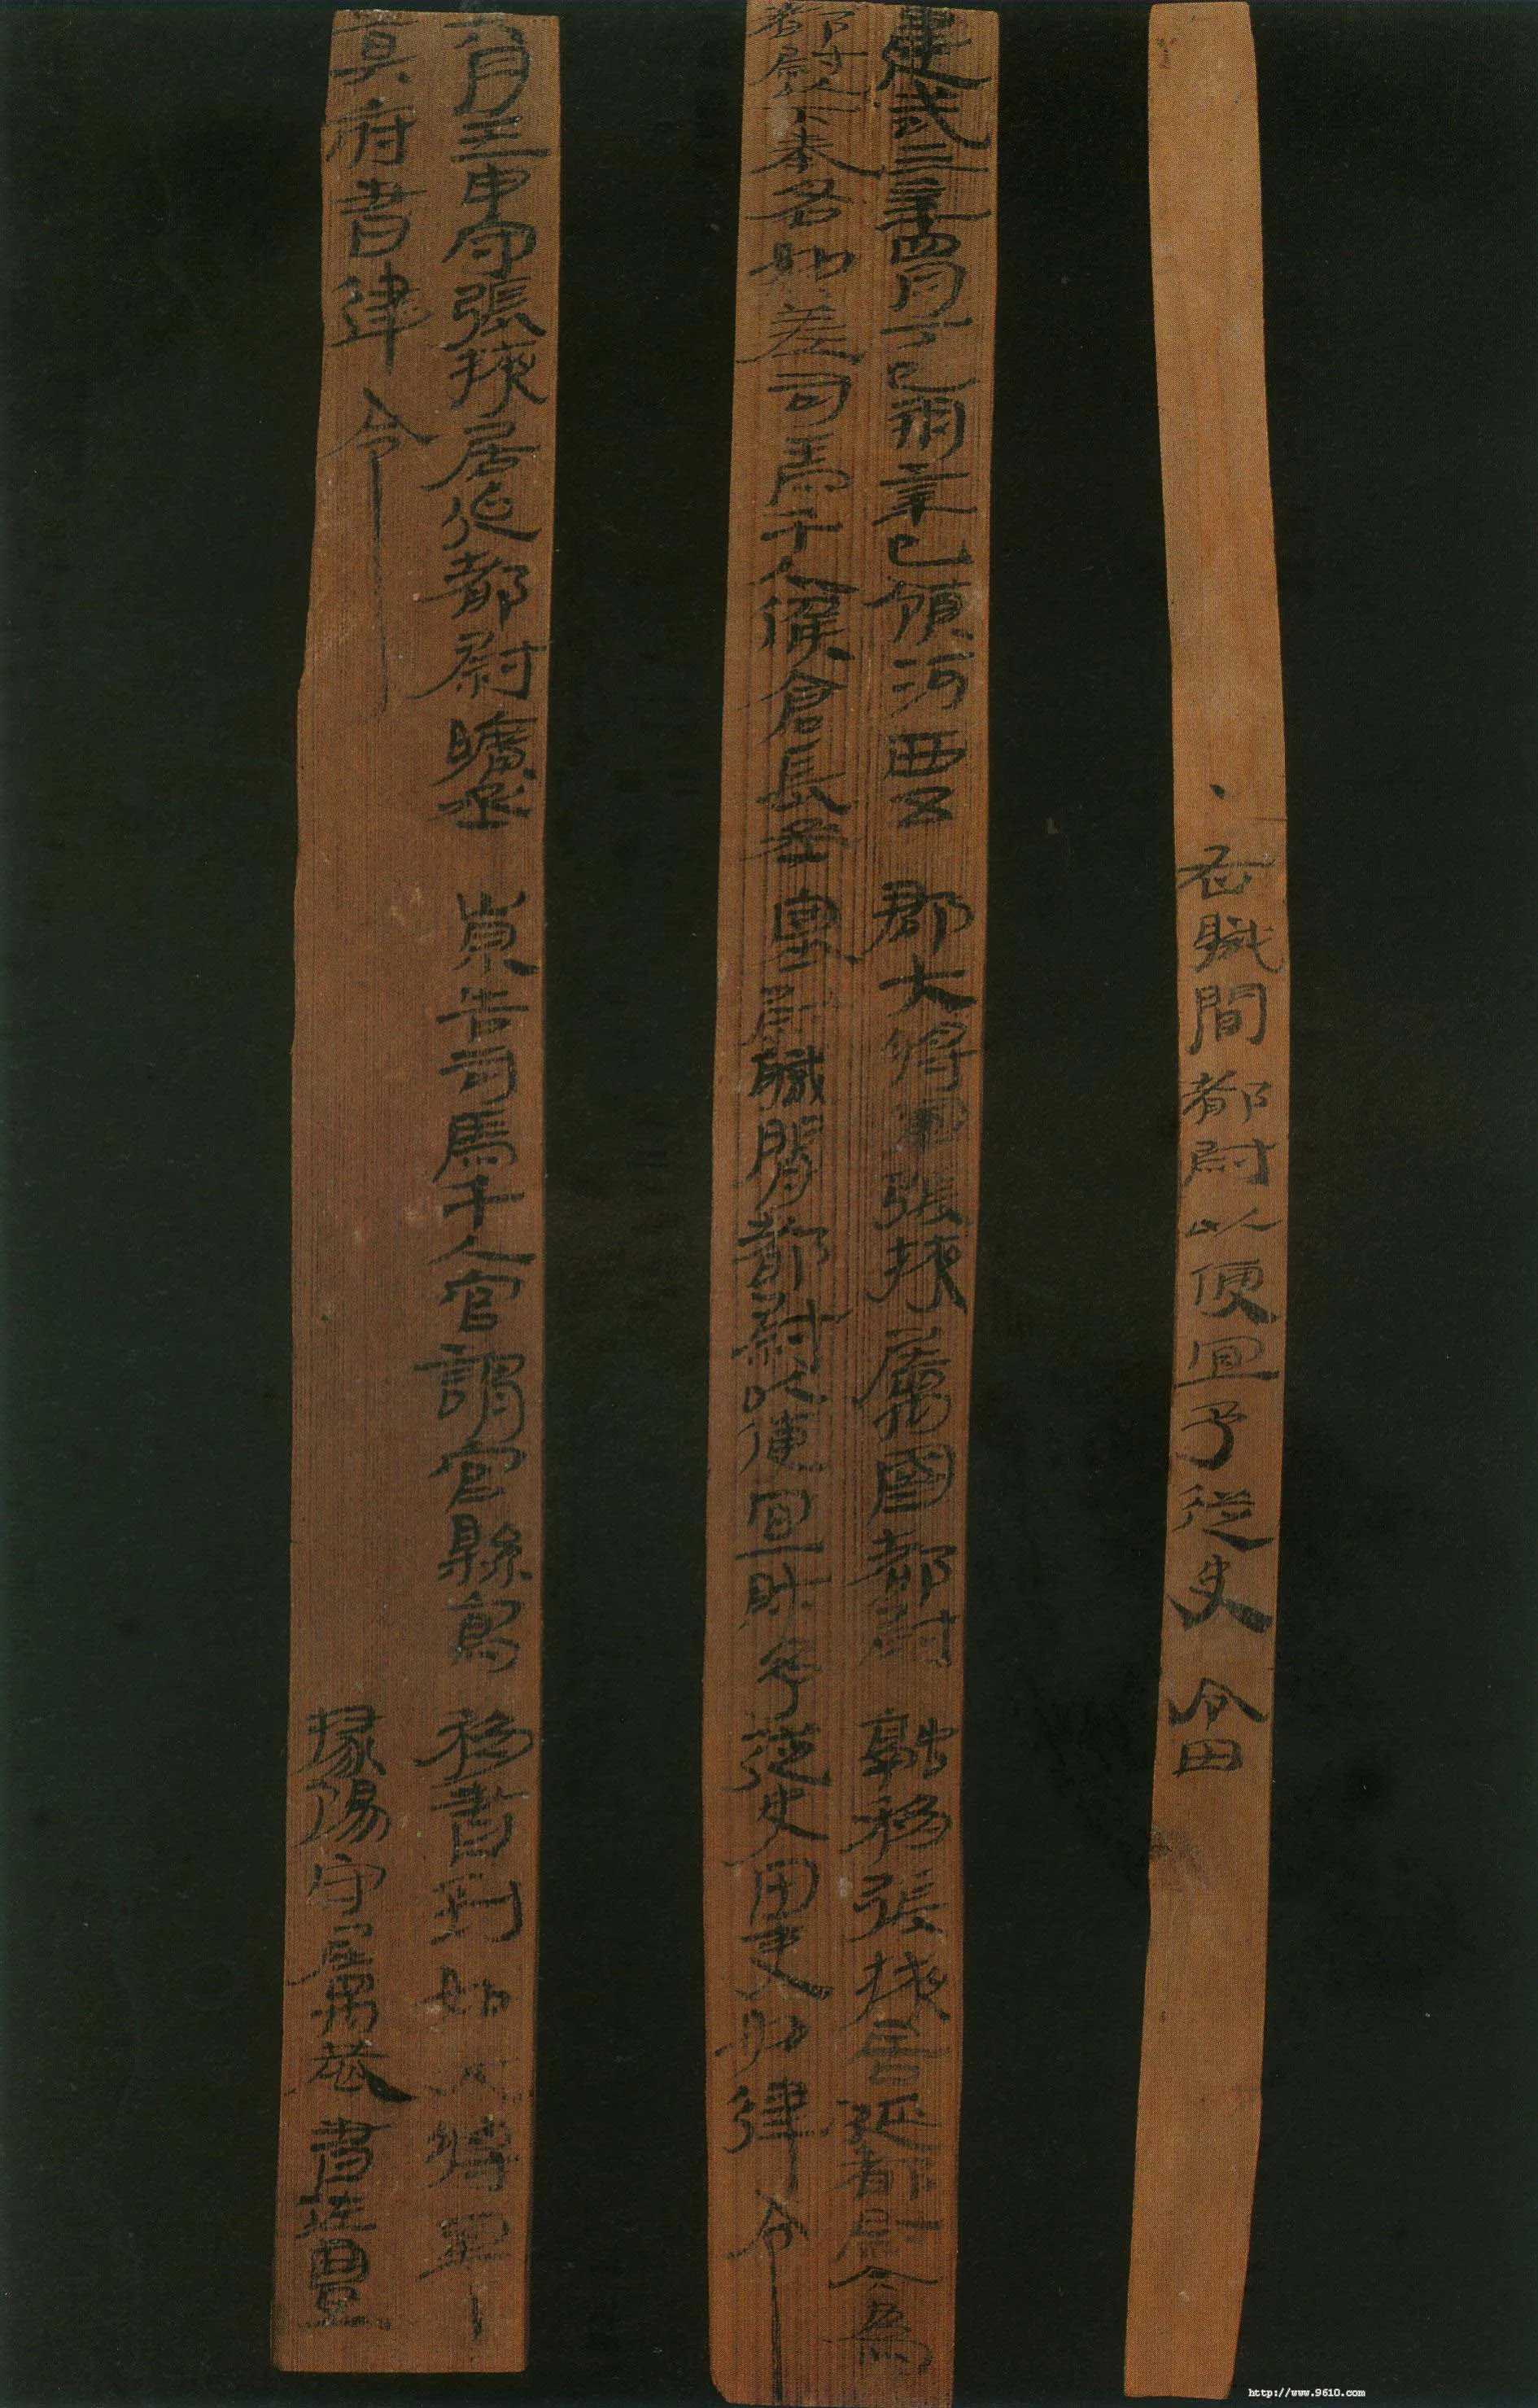 ・右職間都尉以便宜予從史令田
建武三年四月丁巳朔辛巳領河西五郡大將軍張掖屬國都尉融移張掖居延都尉今為
都尉以下奉各如差司馬千人候倉長丞塞尉職間都尉以便宜財予從史田吏如律令
六月壬申守張掖居延都尉曠丞崇告司馬千人官謂官縣寫移書到如大將軍
莫府書律令 掾陽守屬恭書佐豐
http://www.9610.com